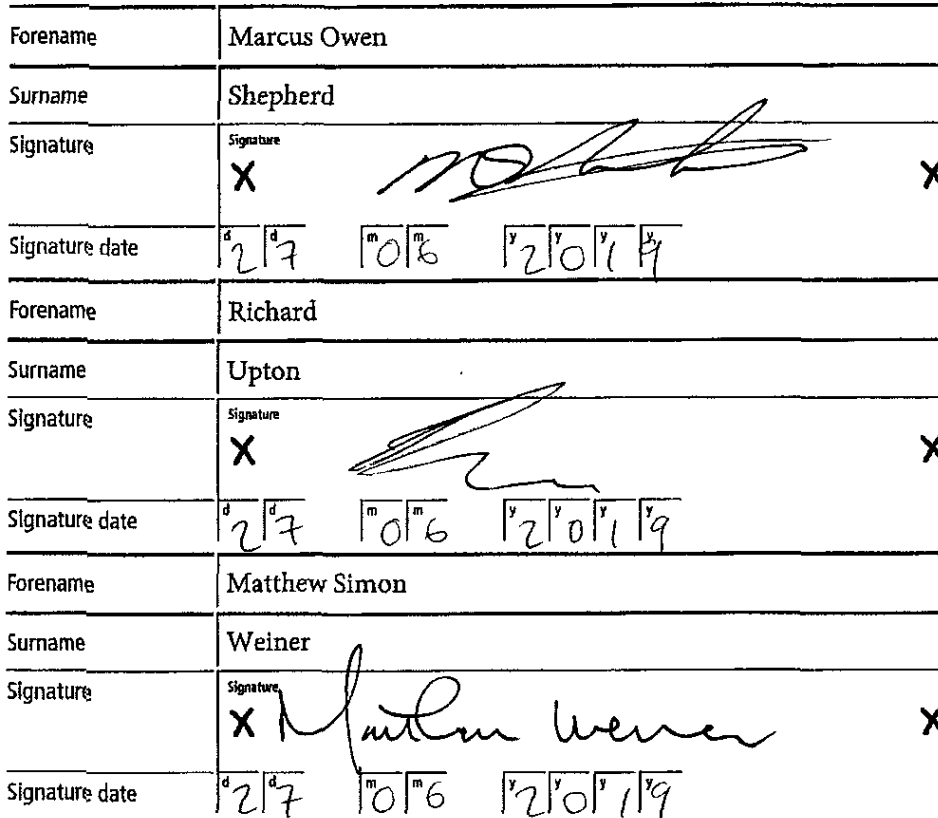 Forename Marcus Owen
Surname Shepherd
Signature Signature
X X
Signature date d2 d7 m0 m6 y2 y0 y1 y9
Forename Richard
Surname Upton
Signature Signature
X X
Signature date d2 d7 m0 m6 y2 y0 y1 y9
Forename Matthew Simon
Surname Weiner
Signature Signature
X Matthew Weiner X
Signature date d2 d7 m0 m6 y2 y0 y1 y9